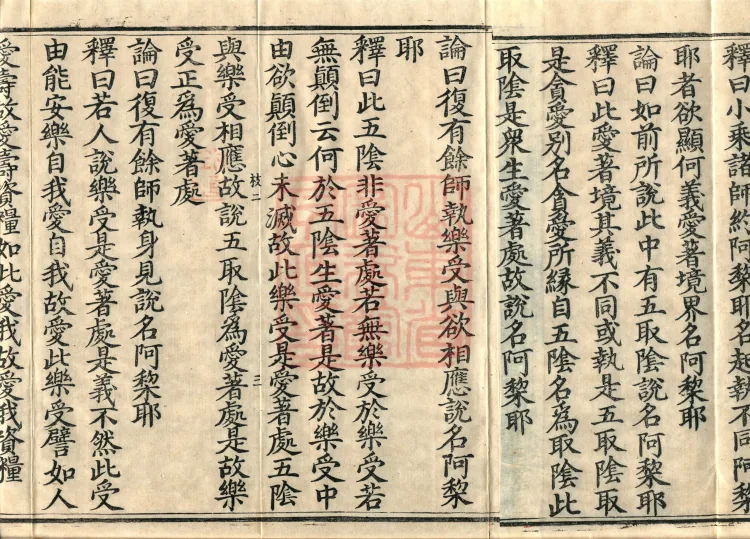 釋曰小乘諸師約阿黎耶名起執不同阿黎
耶者欲顯何義愛著境界名阿黎耶
論曰如前所說此中有五取陰說名阿黎耶
釋曰此愛著境其義不同或執是五取陰取
是貪愛別名貪愛所緣自五陰名爲取陰此
取陰是衆生愛著處故說名阿黎耶
論曰復有餘師執樂受與欲相應說名阿黎
耶
釋曰此五陰非愛著處若無樂受於樂受若
無顛倒云何於五陰生愛著是故於樂受中
由欲顛倒心未滅故此樂受是愛著處五陰
與樂受相應故說五取陰爲愛著處是故樂
受正爲愛著處
論曰復有餘師執身見說名阿黎耶
釋曰若人說樂受是愛著處是義不然此受
由能安樂自我愛自我故愛此樂受譬如人
愛壽故愛壽資糧如此愛我故愛我資糧
三